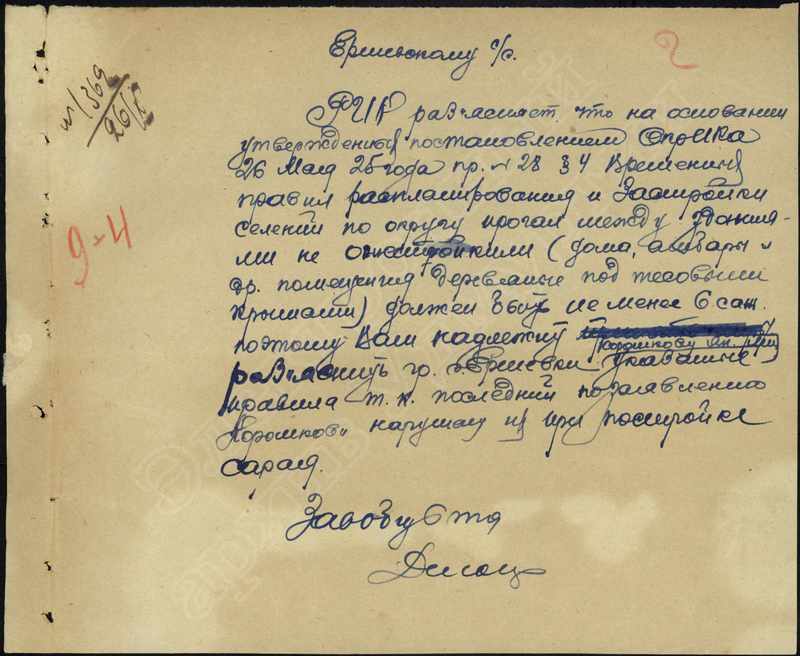 Ершовскому с/с.
2
№/369
26/X
РИК разъясняет что на основании
утвержденный постановлением ОкрИКа
26 Мая 25 года пр. № 28 § 4 Временных
правил распланирования и Застройки
селений по округу прогал между здания-
ми не огнестойкими (дома, амбары и
др. помещения деревянные под тесовыми
крышами) должен быть не менее 6 саж.
поэтому Вам надлежит
разъяснить гр. д. Ершовки указанные
правила т.к. последний по заявлению
Корошков нарушал их при постройке
сарая.
9-4